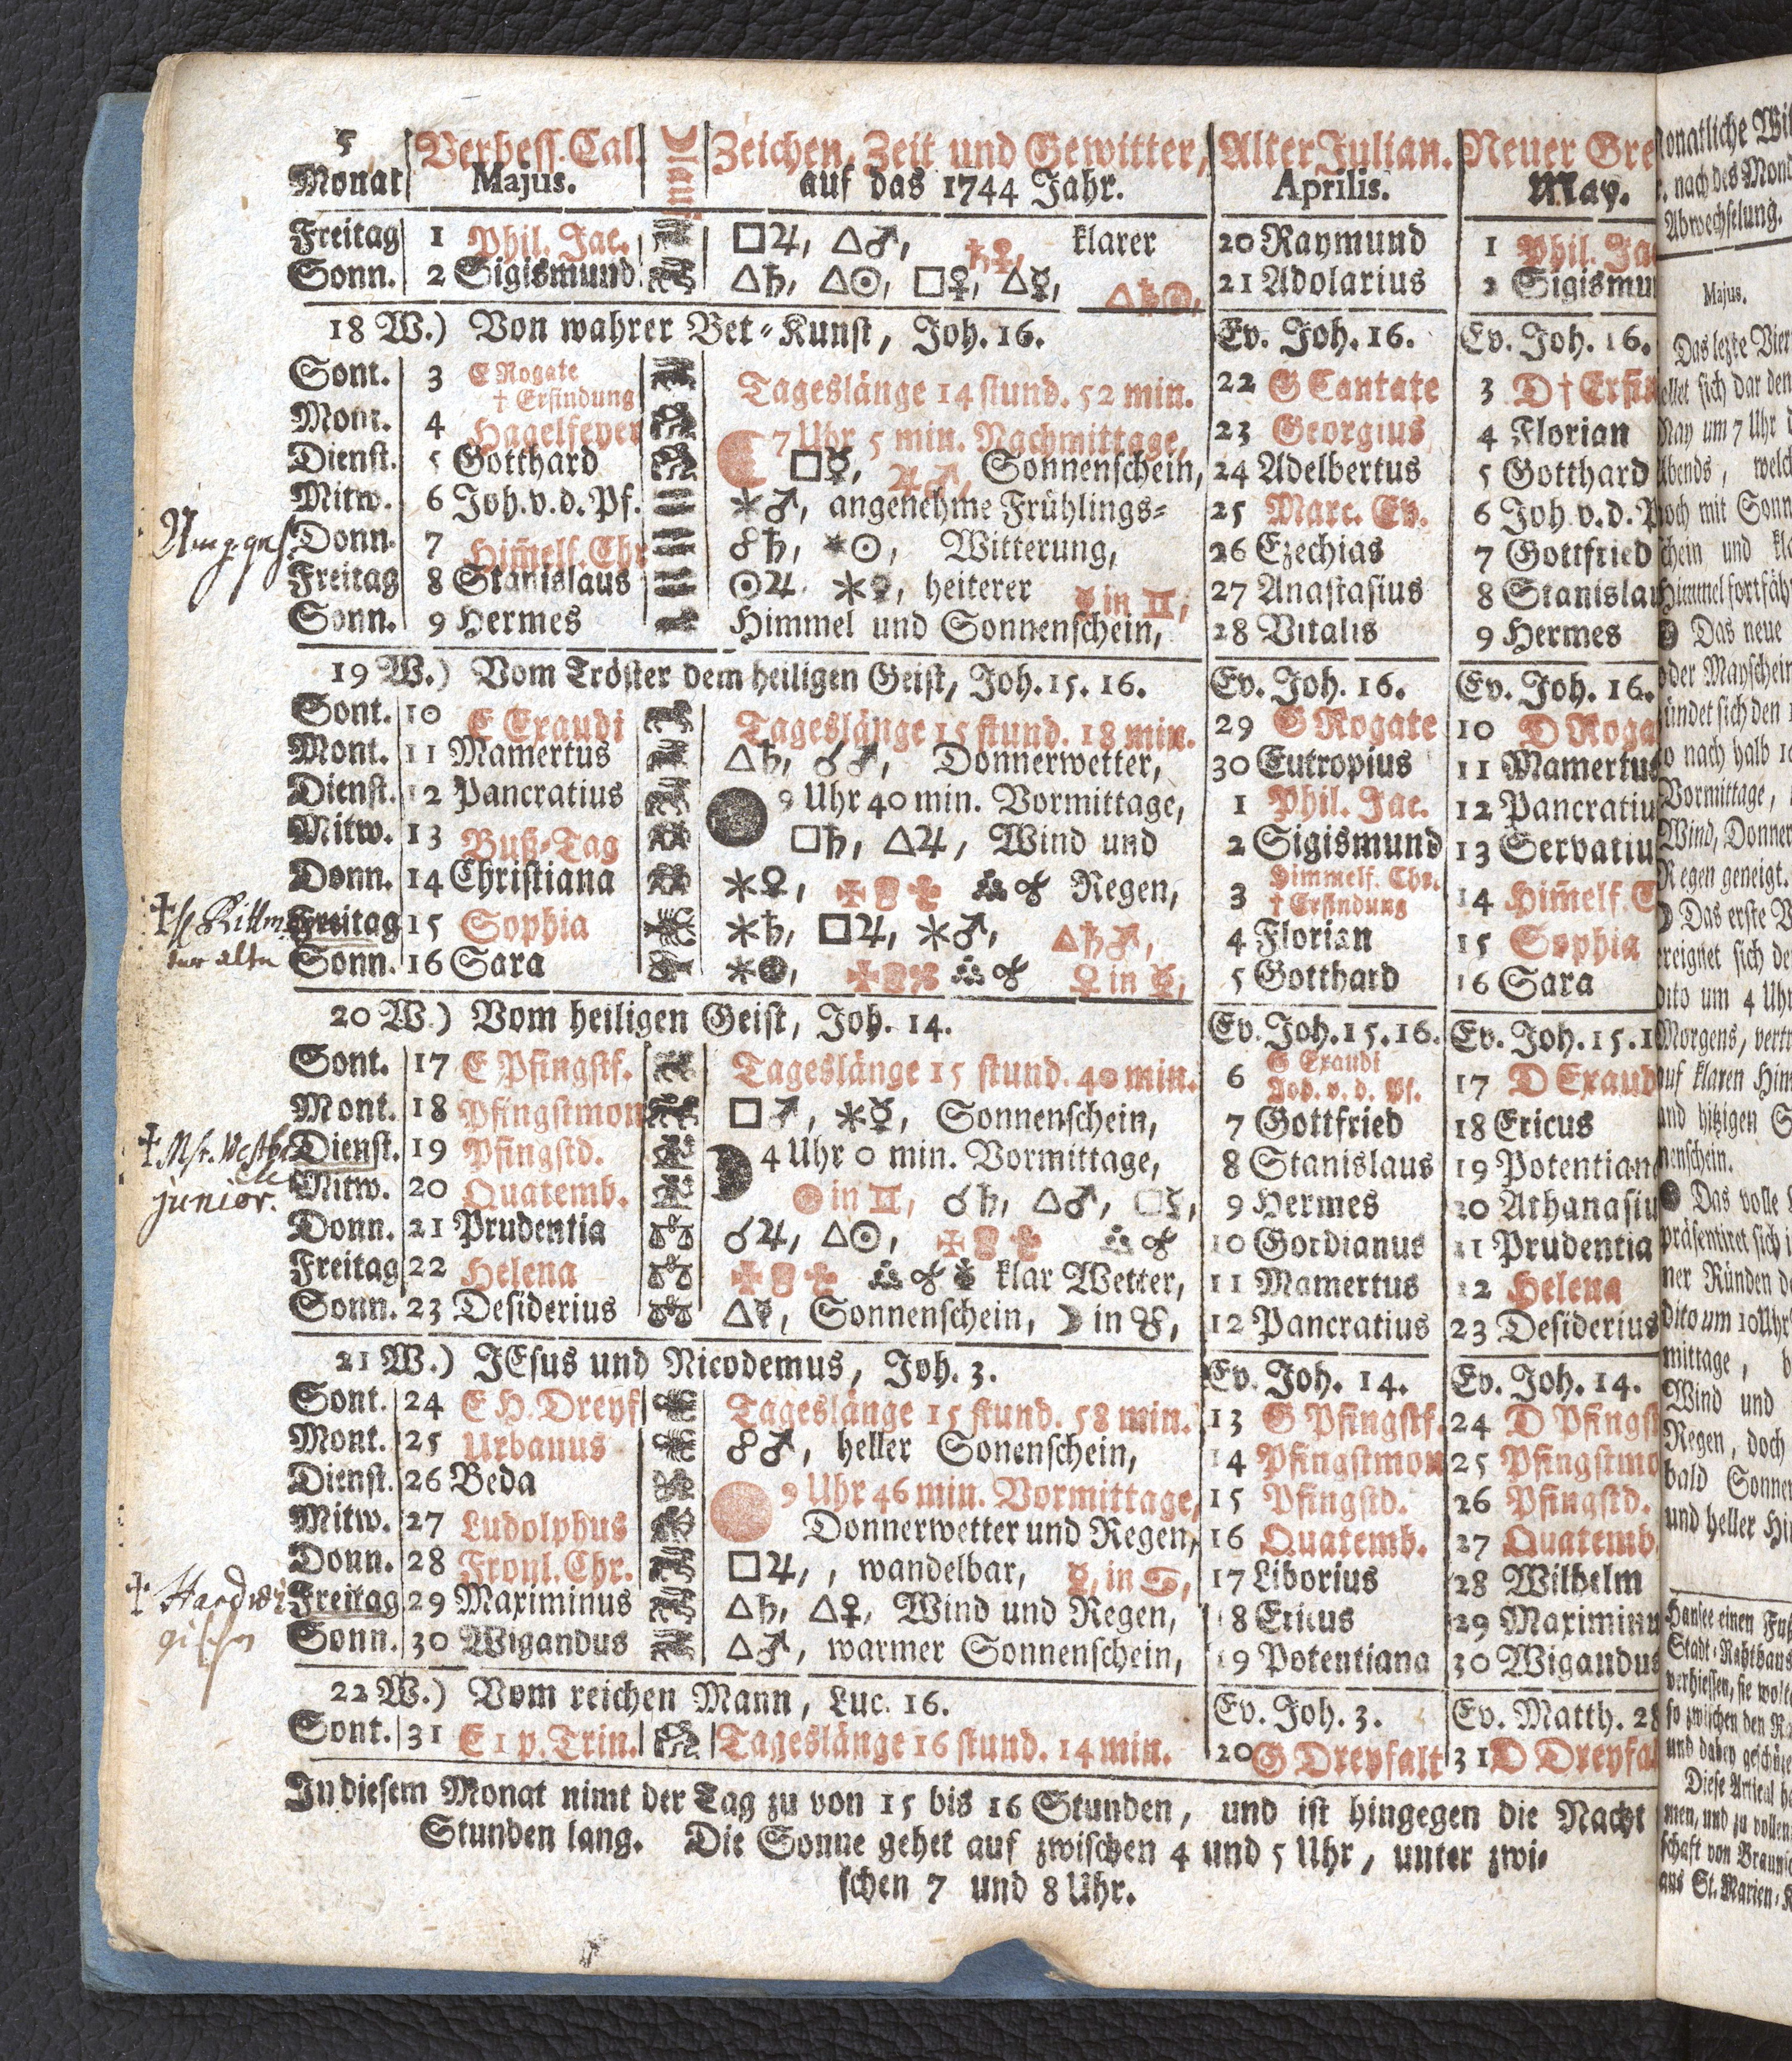 5 Verbess. Cal. ☽ lauf Zeichen, Zeit und Gewitter, Alter Julian. Neuer Gre
Monat Majus. auf das 1744 Jahr. Aprilis. May.
Freitag 1 Phil. Jac. □♃, △♂, ♄♀, klarer 20 Raymund 1 Phil. Ja
Sonn. 2 Sigismund △♄, △☉, □♀, △☿, △♄☉, 21 Adolarius 2 Sigismu
18 W.) Von wahrer Bet-Kunst, Joh. 16. Ev. Joh. 16. Ev. Joh. 16.
Sont. 3 E Rogate † Erfindung Tageslänge 14 stund. 52 min. 22 G Cantate 3 D † Erfin
Mont. 4 Hagelfeyer 7 Uhr 5 min. Nachmittage, 23 Georgius 4 Florian
Dienst. 5 Gotthard □☿, ♃♂, Sonnenschein, 24 Adelbertus 5 Gotthard
Mitw. 6 Joh. v. d. Pf. ⚹♂, angenehme Frühlings- 25 Marc. Ev. 6 Joh v. d. P
Donn. 7 Him̃elf. Chr ☍♄, ⚹☉, Witterung, 26 Ezechias 7 Gottfried
Freitag 8 Stanislaus ☉♃. ⚹♀, heiterer ☿ in ♊, 27 Anastasius 8 Stanislau
Sonn. 9 Hermes Himmel und Sonnenschein, 28 Vitalis 9 Hermes
19 W.) Vom Tröster dem heiligen Geist, Joh. 15. 16. Ev. Joh. 16. Ev. Joh. 16.
Sont. 10 E Exaudi Tageslänge 15 stund. 18 min. 29 G Rogate 10 D Roga
Mont. 11 Mamertus △♄, ☌♂, Donnerwetter, 30 Eutropius 11 Mamertus
Dienst. 12 Pancratius 9 Uhr 40 min. Vormittage, 1 Phil. Jac. 12 Pancratiu
Mitw. 13 Buß-Tag □♄, △♃, Wind und 2 Sigismund 13 Servatiu
Donn. 14 Christiana ⚹♀, Regen, 3 Himmelf. Chr. † Erfindung 14 Him̃elf. C
Freitag 15 Sophia ⚹♄, □♃, ⚹♂, △♄♂, 4 Florian 15 Sophia
der alte
Sonn. 16 Sara ⚹☉, ♀ in ☿, 5 Gotthard 16 Sara
20 W.) Vom heiligen Geist, Joh. 14. Ev. Joh. 15. 16. Ev. Joh. 15. 1
Sont. 17 E Pfingstf. Tageslänge 15 stund. 40 min. 6 G Exaudi Joh. v. d. Pf. 17 D Exaud
Mont. 18 Pfingstmon □♂, ⚹☿, Sonnenschein, 7 Gottfried 18 Ericus
Dienst. 19 Pfingstd. 4 Uhr 0 min. Vormittage, 8 Stanislaus 19 Potentiana
junior.
Mitw. 20 Quatemb. ☉ in ♊, ☌♄, △♂, □☿, 9 Hermes 20 Athanasiu
Donn. 21 Prudentia ☌♃, △☉, 10 Gordianus 21 Prudentia
Freitag 22 Helena klar Wetter, 11 Mamertus 22 Helena
Sonn. 23 Desiderius △☿, Sonnenschein, ☽ in ☊, 12 Pancratius 23 Desiderius
21 W.) JEsus und Nicodemus, Joh. 3. Ev. Joh. 14. Ev. Joh. 14.
Sont. 24 E H. Dreyf Tageslänge 15 stund. 58 min. 13 G Pfingstf. 24 D Pfingst
Mont. 25 Urbanus ☍♂, heller Sonenschein, 14 Pfingstmon 25 Pfingstmo
Dienst. 26 Beda 9 Uhr 46 min. Vormittage, 15 Pfingstd. 26 Pfingstd.
Mitw. 27 Ludolphus Donnerwetter und Regen, 16 Quatemb. 27 Quatemb
Donn. 28 Fronl. Chr. □♃, , wandelbar, ☿, in ♋, 17 Liborius 28 Wilhelm
Freitag 29 Maximinus △♄, △♀, Wind und Regen, 18 Ericus 29 Maximinu
Sonn. 30 Wigandus △♂, warmer Sonnenschein, 19 Potentiana 30 Wigandus
22 W.) Vom reichen Mann, Luc. 16. Ev. Joh. 3. Ev. Matth. 28
Sont. 31 E 1 p. Trin. Tageslänge 16 stund. 14 min. 20 G Dreyfalt 31 D Dreyfa
In diesem Monat nimt der Tag zu von 15 bis 16 Stunden, und ist hingegen die Nacht
Stunden lang. Die Sonne gehet auf zwischen 4 und 5 Uhr, unter zwi-
schen 7 und 8 Uhr.
onatliche Wit
nach des Mond
Abwechselung.
Majus.
Das lezte Vier
ellet sich dar den
May um 7 Uhr
Abends, welch
och mit Sonn
schein und kla
Himmel fortfäh
Das neue
oder Mayschein
ündet sich den
o nach halb 10
Vormittage,
Wind, Donner
Regen geneigt.
Das erste V
ereignet sich de
dito um 4 Uhr
Morgens, vertr
auf klaren Him
and hitzigen S
nenschein.
Das volle
präsentiret sich
ner Ründen d
dito um 10 Uhr
mittage,
Wind und
Regen, doch
bald Sonnen
und heller Hi
Hansee einen Fu
Stadt-Rahthaus
verhiessen, sie wolt
so zwischen den R
und dabey geschütze
Diese Articul
men, und zu vollen
schaft von Brauns
aus St. Marien-K